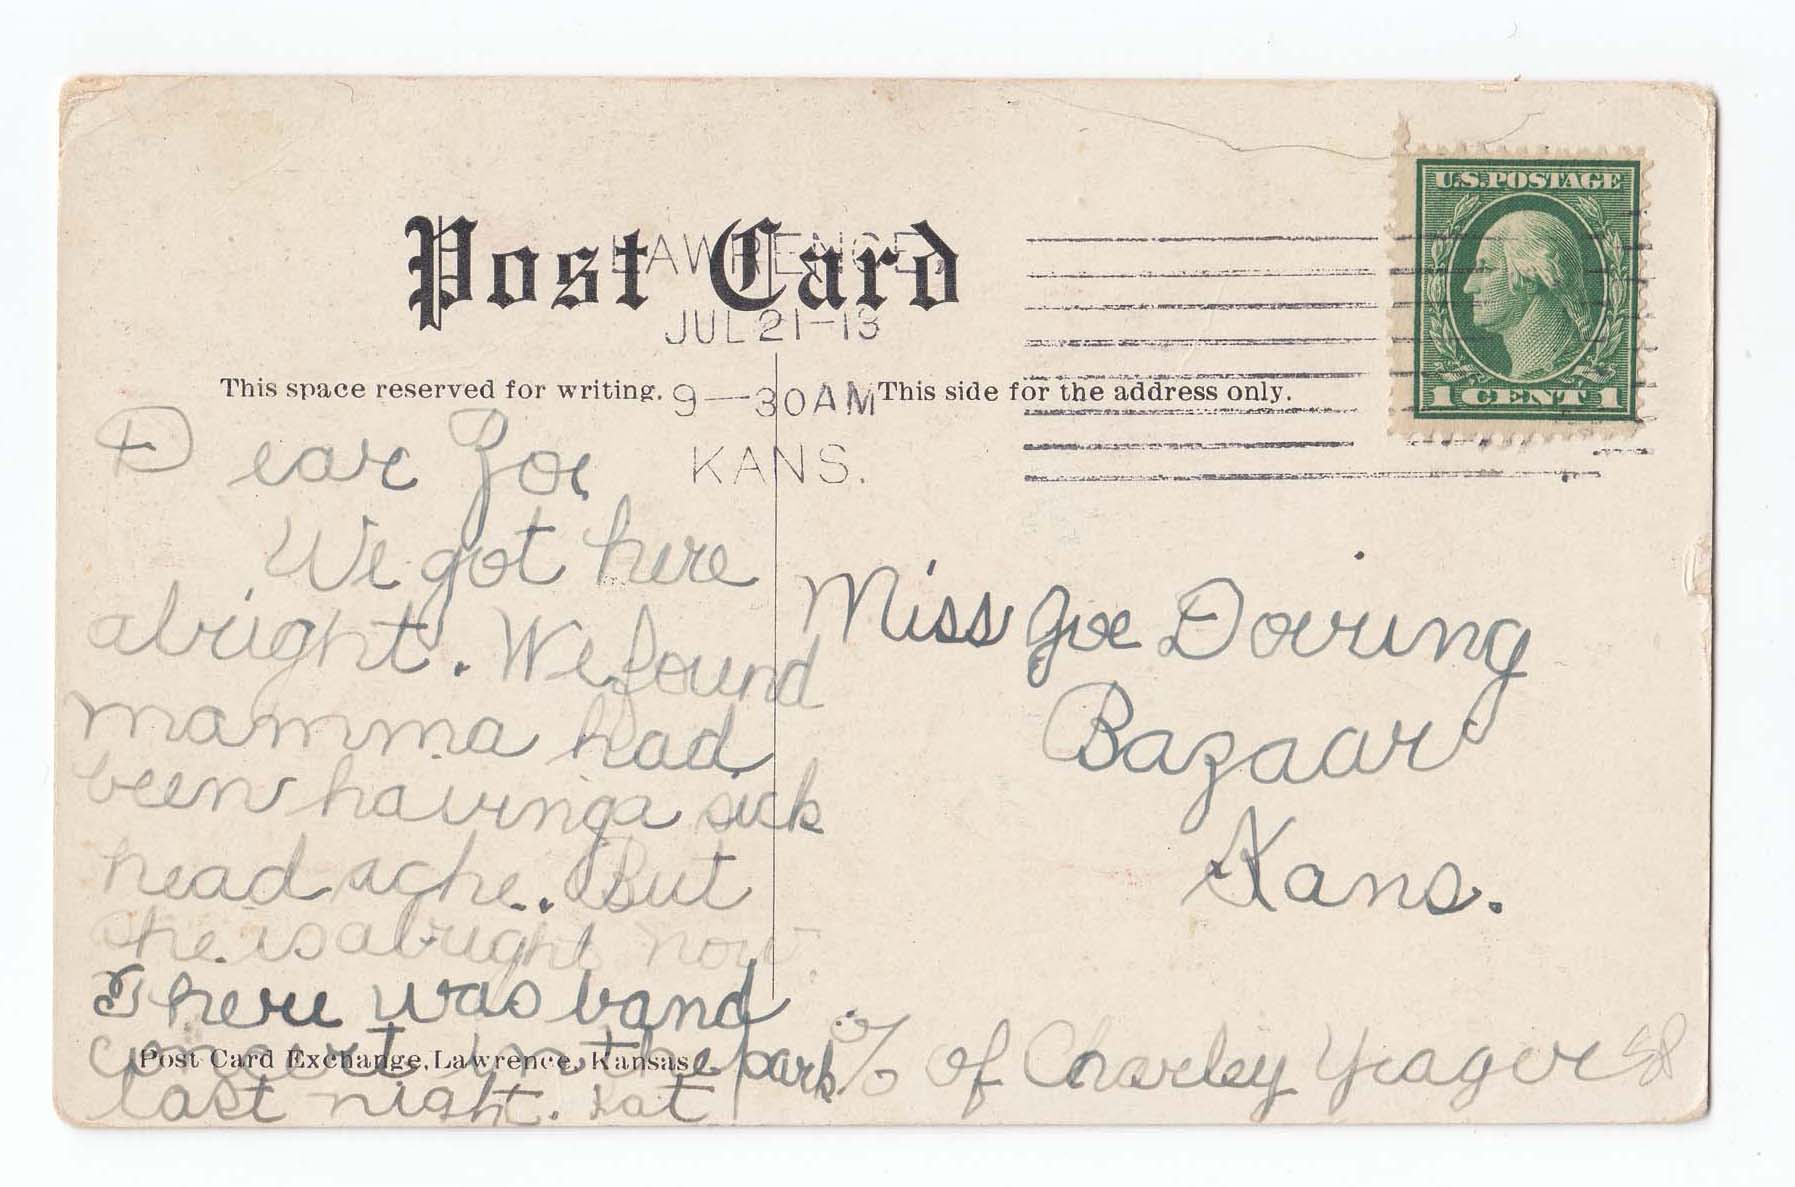 U.S. POSTAGE
1 CENT 1
Post Card
LAWRENCE,
JUL 21-13
9-30 AM
KANS.
This space reserved for writing.
This side for the address only.
Dear Zoe
We got here
alright. We found
mamma had
been having a sick
head ache. But
she is alright now.
There was band
concert in the park
last night.
Post Card Exchange, Lawrence, Kansas.
Miss Zoe Doering
Bazaar
Kans.
% of Charley Yeager